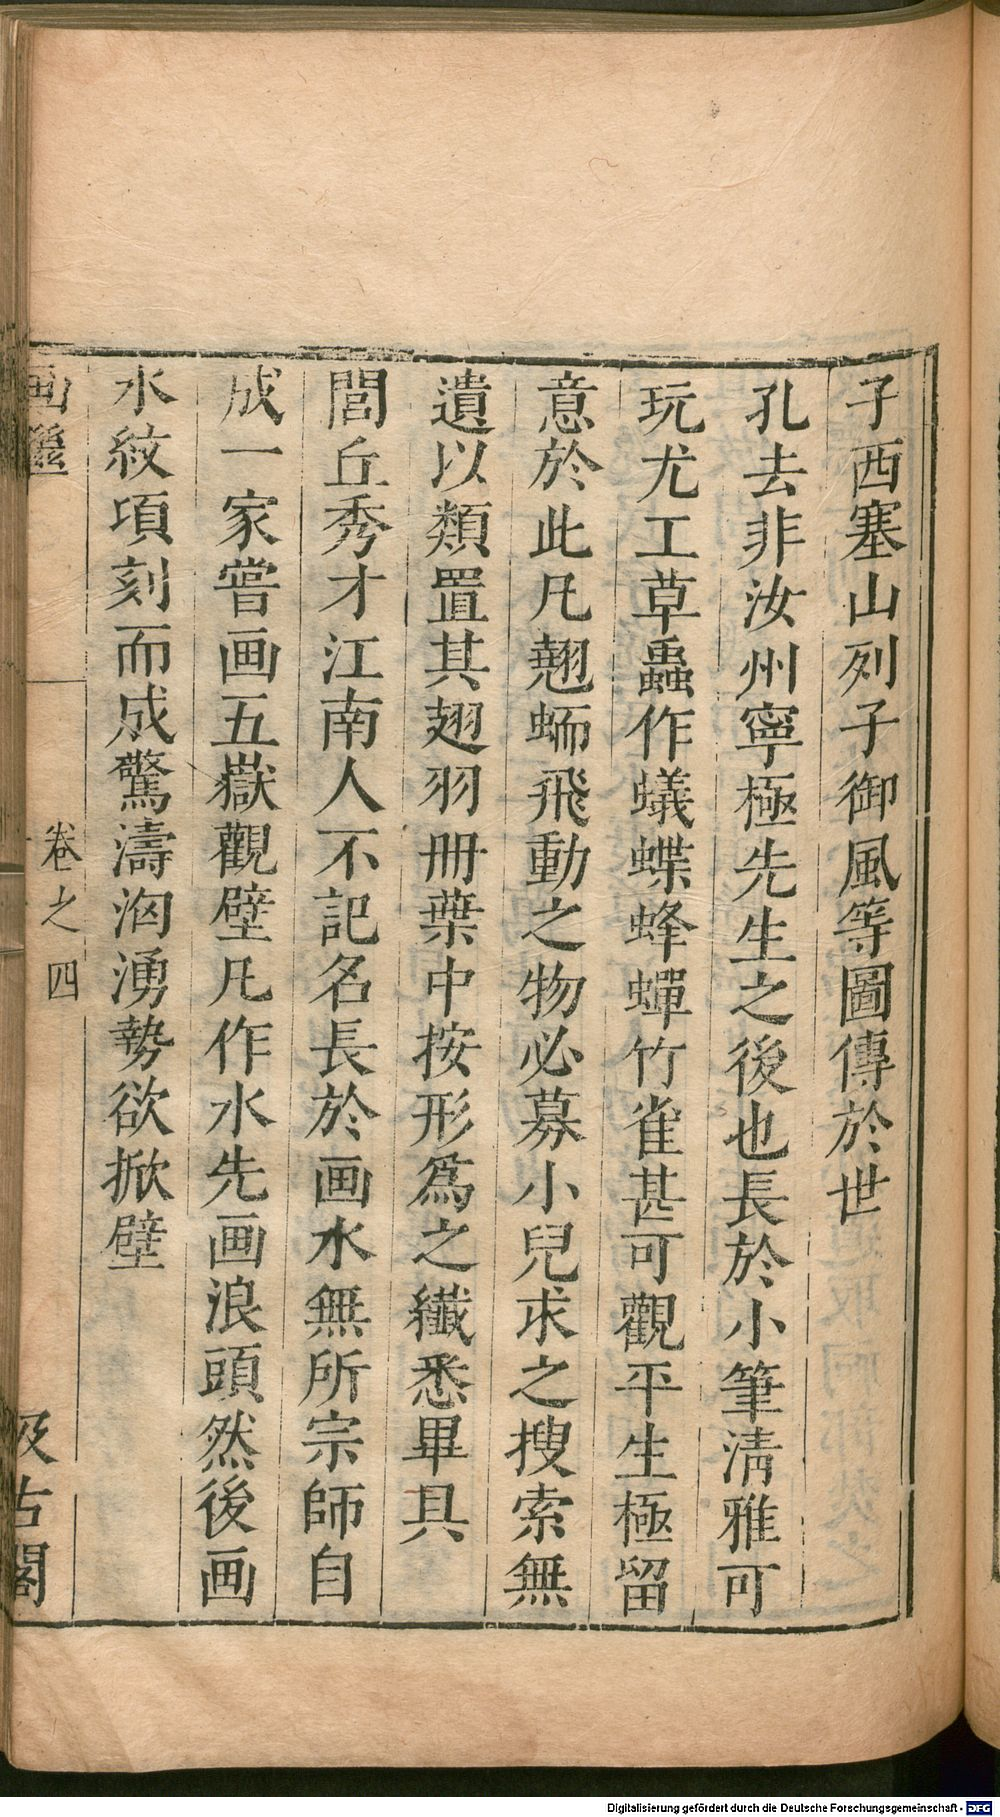 子西塞山列子御風等圖傳於世
孔去非汝州寧極先生之後也長於小筆淸雅可
玩尤工草蟲作蟻蝶蜂蟬竹雀甚可觀平生極留
意於此凡翹蝡飛動之物必募小兒求之搜索無
遺以類置其翅羽冊葉中按形爲之纖悉畢具
閭丘秀才江南人不記名長於画水無所宗師自
成一家嘗画五嶽觀壁凡作水先画浪頭然後画
水紋項刻而成驚濤洶湧勢欲掀壁
画繼 卷之四 汲古閣
Digitalisierung gefördert durch die Deutsche Forschungsgemeinschaft - DFG